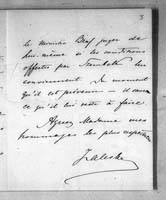 3
le Ministre Bref juger de
lui-même si les conditions
offertes par Stamboli lui
conviennent. Du moment
qu'il est prévenu — il saura
ce qu'il lui reste à faire
Agréez Madame mes
hommages les plus